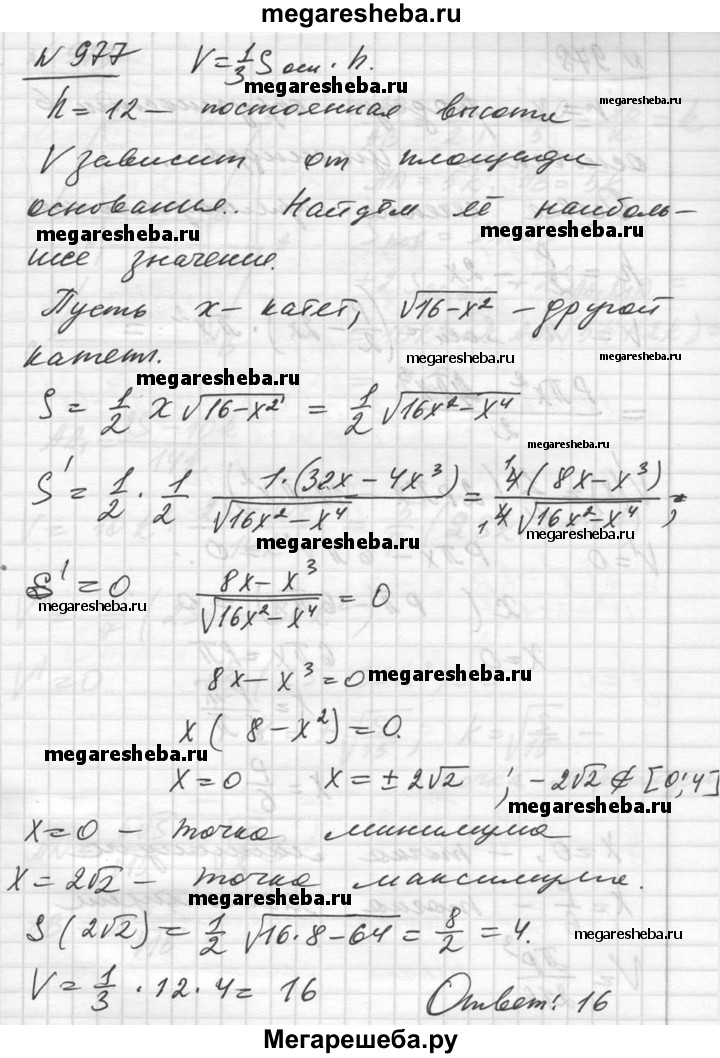 megaresheba.ru
N 977 V=1/3 S осн · h.
megaresheba.ru
h=12 – постоянная высота
megaresheba.ru
V зависит от площади
основания. Найдём её наиболь-
megaresheba.ru megaresheba.ru
шее значение.
Пусть x – катет, √16-x² – другой
катет.
megaresheba.ru megaresheba.ru
megaresheba.ru
S = 1/2 x √16-x² = 1/2 √16x²-x⁴
megaresheba.ru
S' = 1/2 · 1/2 1·(32x-4x³)/√16x²-x⁴ = 4(8x-x³)/4√16x²-x⁴ ;
megaresheba.ru megaresheba.ru
S'=0 8x-x³/√16x²-x⁴ = 0
megaresheba.ru megaresheba.ru
8x-x³=0
megaresheba.ru
x(8-x²)=0.
megaresheba.ru
x=0 x=±2√2 ; -2√2 ∉ [0;4]
megaresheba.ru
x=0 – точка минимума
x=2√2 – точка максимума.
megaresheba.ru
S(2√2) = 1/2 √16·8-64 = 8/2 = 4.
megaresheba.ru
V = 1/3 · 12 · 4 = 16 Ответ: 16
Мегарешеба.ру